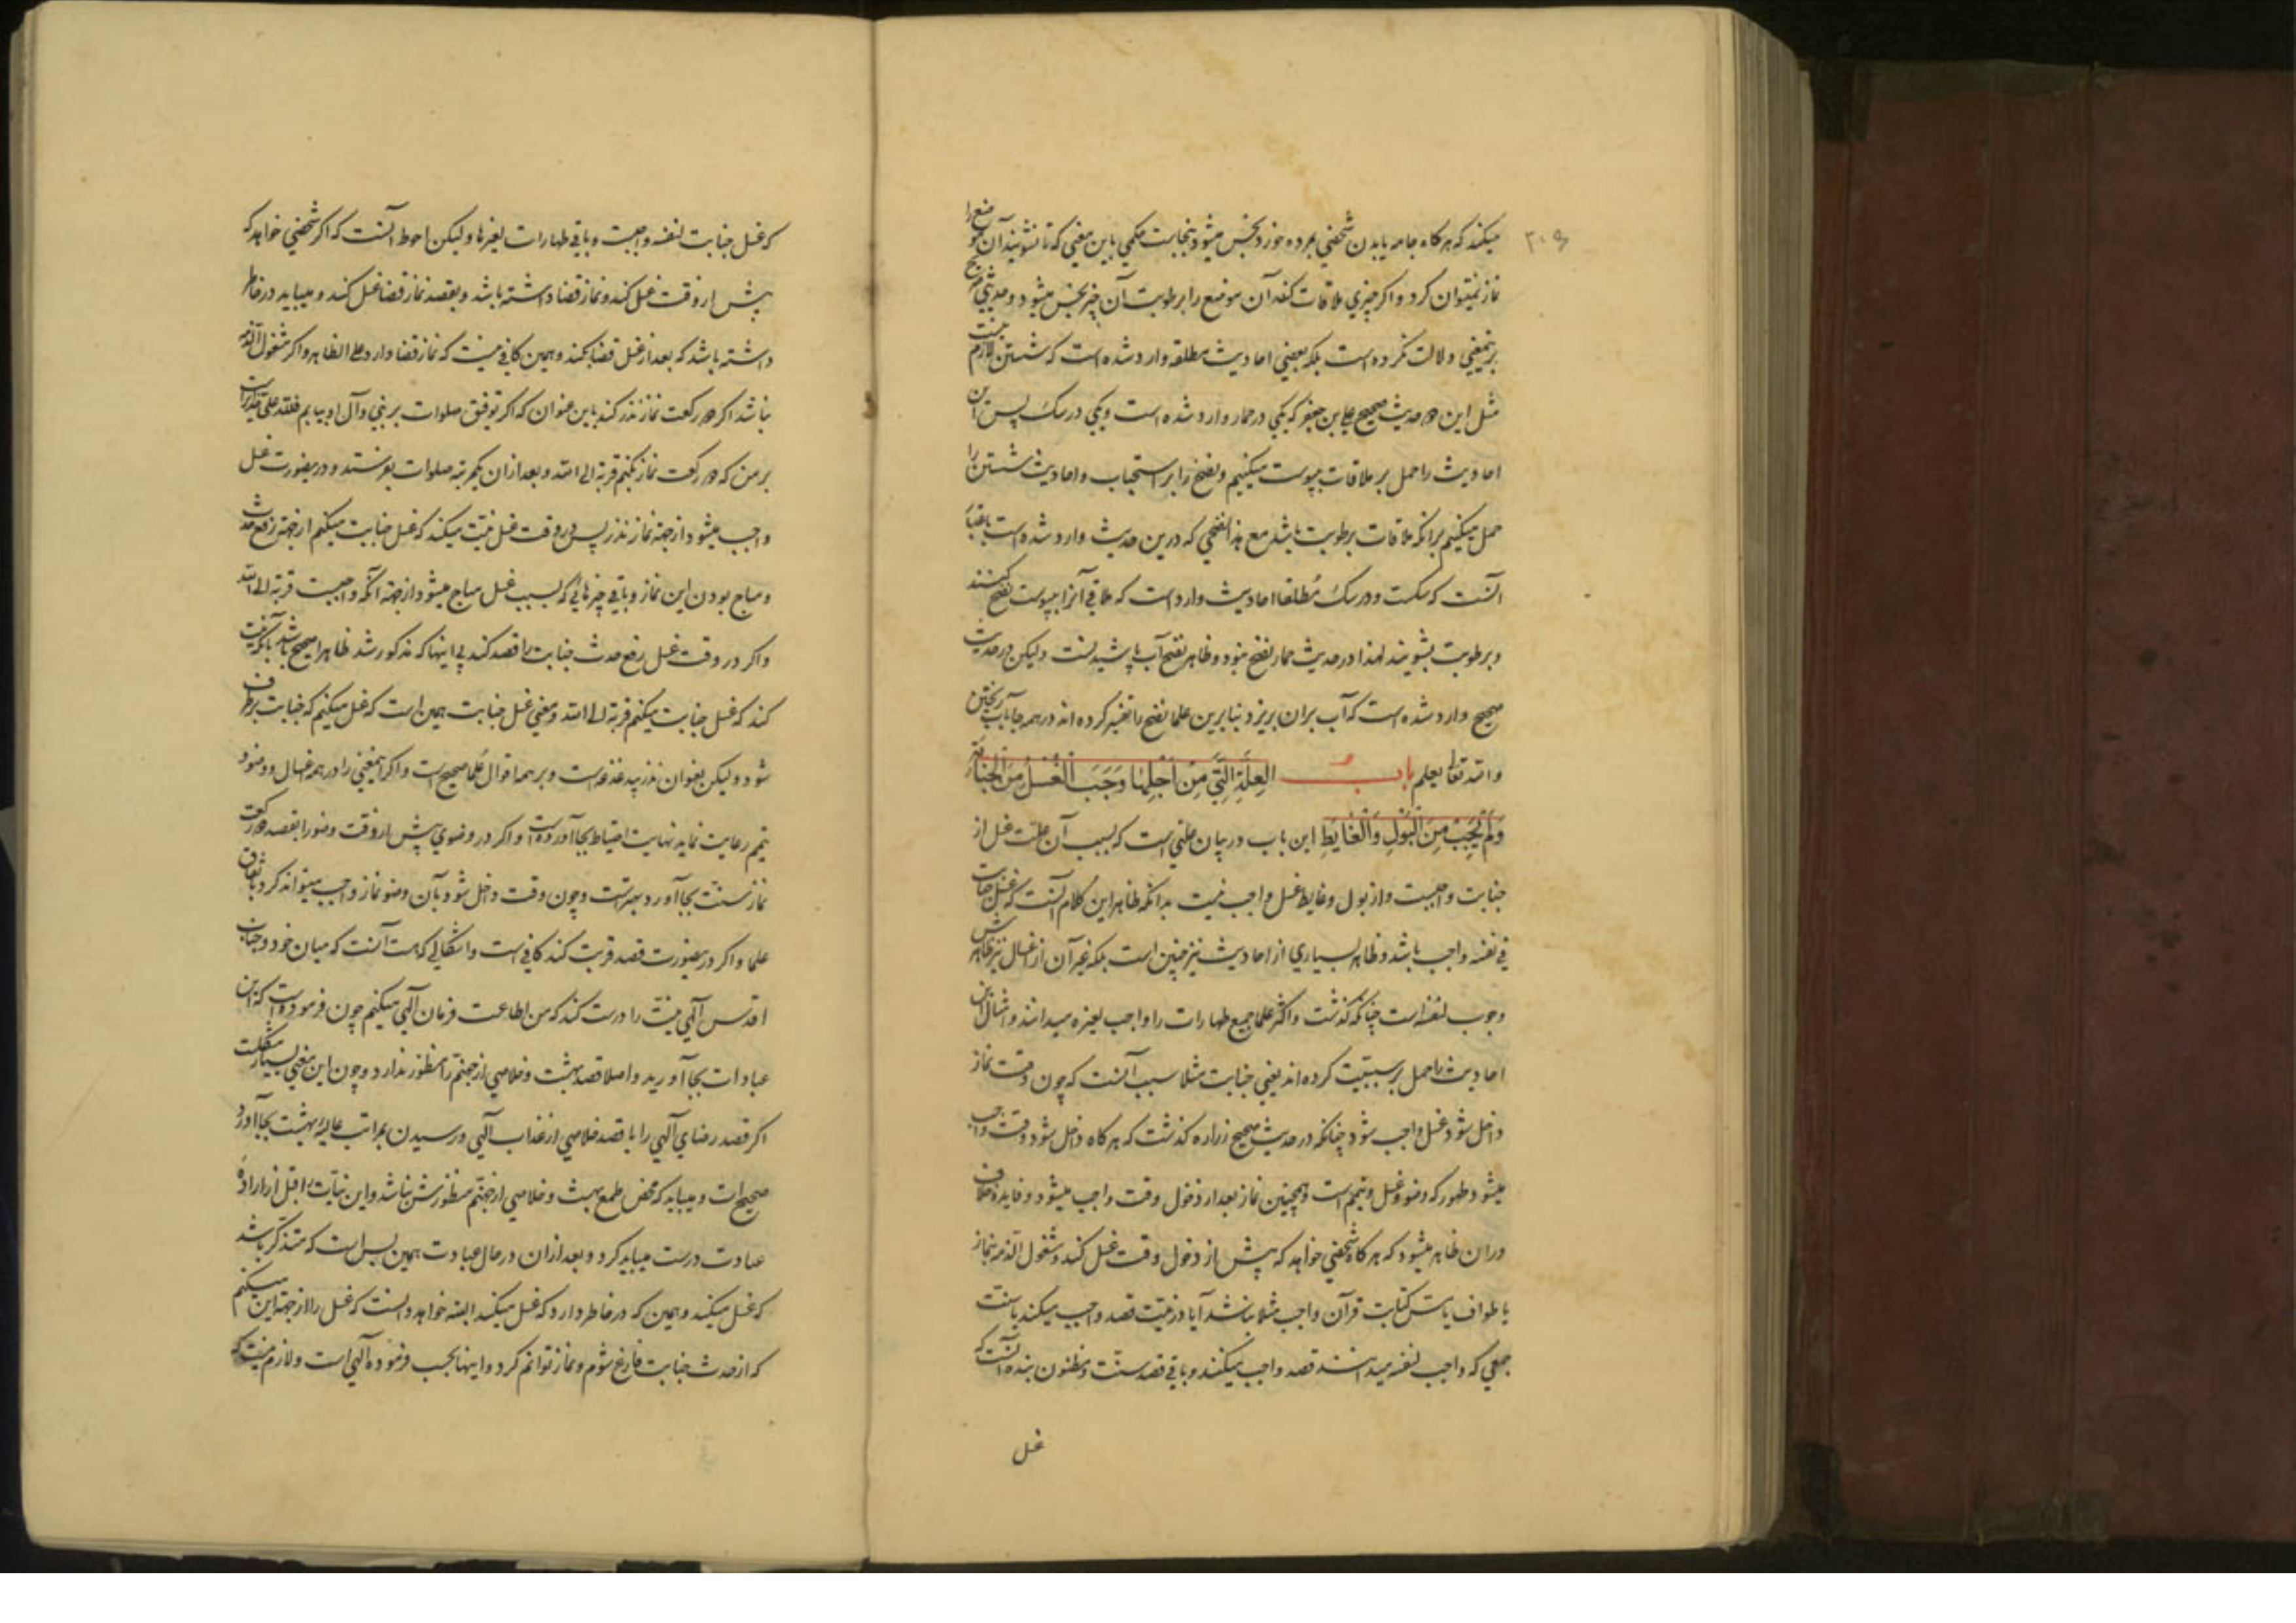 ۲۰۶
میکند که هرکاه جامه یا بدن شخصی بمرده خورد نجس میشود بنجاست حکمی باین معنی که تا نشویند آن موضع را
نماز نمیتوان کرد و اکر چیزی ملاقات کند آن موضع را برطوبت آن چیز نجس میشود و حدیثی صحیح
برینمعنی دلالت نکرده است بلکه بعضی احادیث مطلقه وارد شده است که شستن لازم نیست
مثل این دو حدیث صحیح علی بن جعفر که یکی در حمار وارد شده است و یکی در سک پس این
احادیث را حمل بر ملاقات بیبوست میکنیم و نضح را بر استحباب و احادیث شستن را
حمل میکنیم برانکه ملاقات برطوبت باشد مع هذا نضحی که درین حدیث وارد شده است باعتبار
آنست که سکست و در سک مطلقا احادیث وارد است که ملاقی آنرا بیبوست نضح کنند
و برطوبت بشویند لهذا در حدیث حمار نضح نبود و ظاهر نضح آب پاشیدنست ولیکن در حدیث
صحیح وارد شده است که آب بران بریزد بنابرین علما نضح را تفسیر کرده اند در همه جا بآب ریختن
والله تعالی یعلم باب العِلَّةِ الَّتِي مِنْ اَجْلِهَا وَجَبَ الْغُسْلُ مِنَ الْجَنَابَةِ
وَلَمْ يَجِبْ مِنَ الْبَوْلِ وَالْغَايِطِ این باب در بیان علتی است که بسبب آن علت غسل از
جنابت واجبست و از بول و غایط غسل واجب نیست بدانکه ظاهر این کلام آنست که غسل جنابت
فی نفسه واجب باشد و ظاهر بسیاری از احادیث نیز چنین است بلکه غیر آن از اغسال نیز ظاهرش
وجوب لنفسه است چنانکه کذشت و اکثر علما جمیع طهارات را واجب لغیره میدانند و امثال این
احادیث را حمل بر سببیت کرده اند یعنی جنابت مثلا سبب آنست که چون وقت نماز
داخل شود غسل واجب شود چنانکه در حدیث صحیح زراره کذشت که هرکاه داخل شود وقت واجب
میشود طهور که وضو و غسل و تیمم است و همچنین نماز بعد از دخول وقت واجب میشود و فایده خلاف
دران ظاهر میشود که هرکاه شخصی خواهد که پیش از دخول وقت غسل کند و مشغول الذمه بنماز
یا طواف یا مس کتابت قرآن واجب مثلا نباشد آیا در نیت قصد واجب میکند یا سنت
جمعی که واجب لنفسه میدانند قصد واجب میکنند و باقی قصد سنت و مظنون بنده آنست که
غسل
که غسل جنابت لنفسه واجبست و باقی طهارات لغیرها ولیکن احوط آنست که اکر شخصی خواهد که
پیش از وقت غسل کند و نماز قضا داشته باشد و بقصد نماز قضا غسل کند و میباید در خاطر
داشته باشد که بعد از غسل قضا بکند و همین کافی نیست که نماز قضا دارد علی الظاهر و اکر مشغول الذمه
نباشد اکر دو رکعت نماز نذر کند باین عنوان که اکر توفیق صلوات بر نبی و آل او بیابم فلله علی
بر من که دو رکعت نماز بکنم قربة الی الله و بعد ازان یکمرتبه صلوات بفرستد و درینصورت غسل
واجب میشود از جهة نماز نذر پس در وقت غسل نیت میکند که غسل جنابت میکنم از جهة رفع حدث
و مباح بودن این نماز و باقی چیزهایی که بسبب غسل مباح میشود از جهة آنکه واجبست قربة الی الله
و اکر در وقت غسل رفع حدث جنابت را قصد کند بی اینها که مذکور شد ظاهرا صحیح باشد بآنکه نیت
کند که غسل جنابت میکنم قربة الی الله و معنی غسل جنابت همین است که غسل میکنم که جنابت برطرف
شود ولیکن بعنوان نذر بیدغدغه است و بر همه اقوال علما صحیح است و اکر اینمعنی را در همه اغسال و وضو و
تیمم رعایت نماید نهایت احتیاط بجا آورده است و اکر در وضوی پیش از وقت وضو را بقصد دو رکعت
نماز سنت بجا آورد بهترست و چون وقت داخل شود بآن وضو نماز واجب میتواند کرد باتفاق
علما و اکر درینصورت قصد قربت کند کافی است و اشکالی که هست آنست که میان خود و جناب
اقدس آلهی نیت را درست کند که من اطاعت فرمان آلهی میکنم چون فرموده است که این
عبادات بجا آورید و اصلا قصد بهشت و خلاصی از جهنم را منظور ندارد و چون این معنی بسیار مشکلست
اکر قصد رضای آلهی را با قصد خلاصی از عذاب آلهی و رسیدن بمراتب عالیه بهشت بجا آورد
صحیح است و میباید که محض طمع بهشت و خلاصی از جهنم منظورش نباشد و این نیات را قبل از اراده
عبادت درست میباید کرد و بعد ازان در حال عبادت همین بس است که متذکر باشد
که غسل میکند و همین که در خاطر دارد که غسل میکند البته خواهد دانست که غسل را از جهة این میکنم
که از حدث جنابت فارغ شوم و نماز توانم کرد و اینها بحسب فرموده آلهی است و لازم نیست که